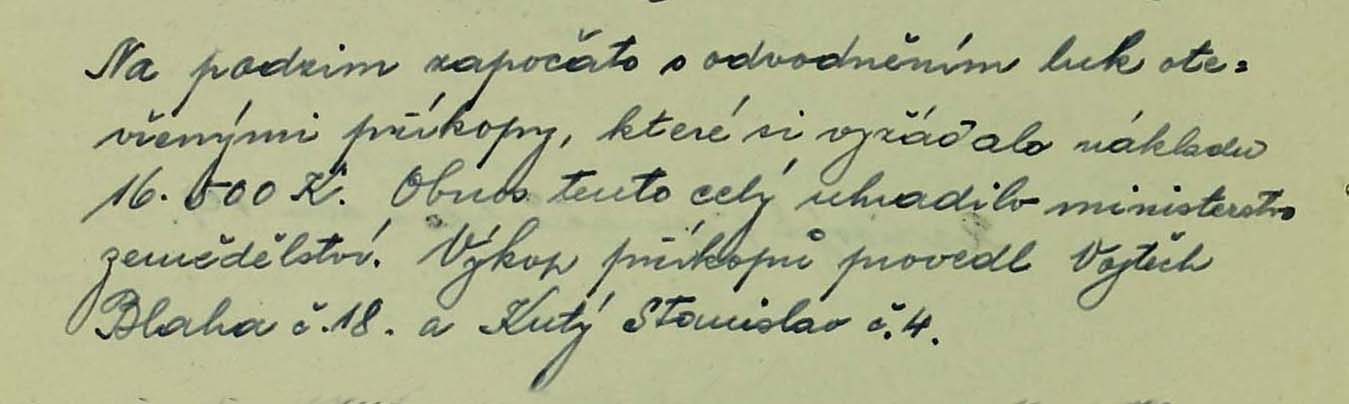 Na podzim započato s odvodněním luk ote=
vřenými příkopy, které si vyžádalo nákladu
16.500 K. Obnos tento celý uhradilo ministerstvo
zemědělství. Výkop příkopů provedl Vojtěch
Blaha č.18. a Kutý Stanislav č.4.